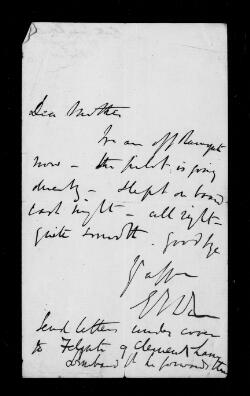 Dear Mother
I'm off Ramsgate
now – the pilot is going
directly – slept on board
last night – all right –
quite smooth. Goodbye
Send letters under cover
to Felgate 9 Clement's Lane
Lombard St he forwards them